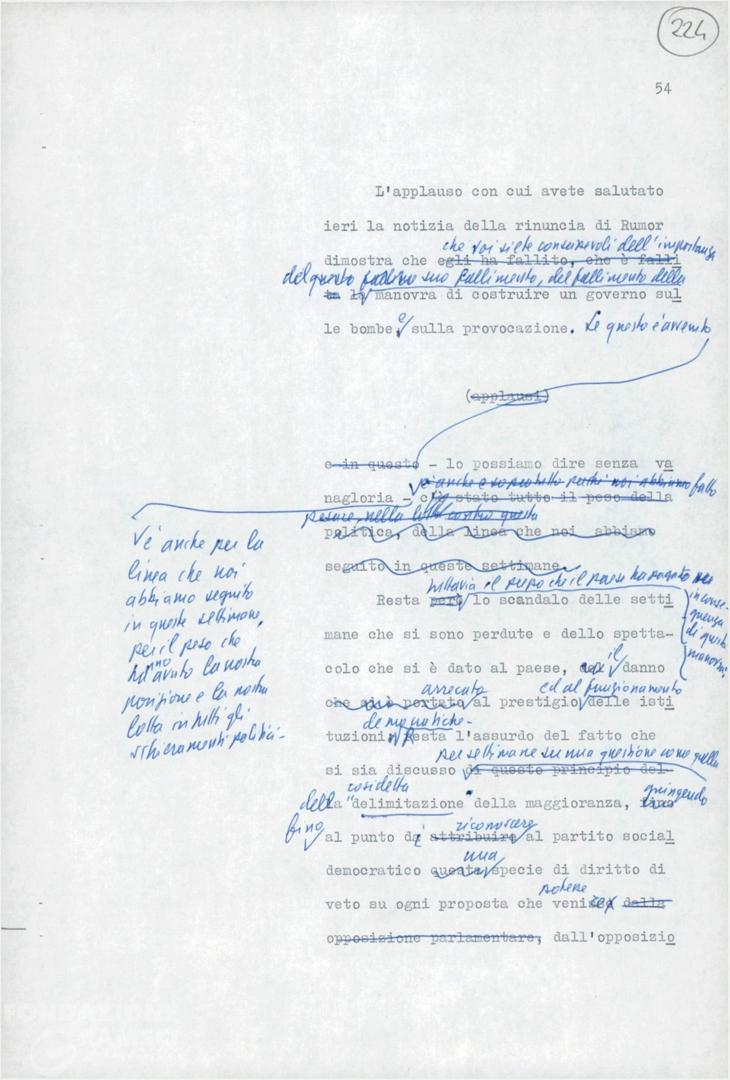 224
54
L'applauso con cui avete salutato
ieri la notizia della rinuncia di Rumor
che voi siete consapevoli dell'importanza
dimostra che egli ha fallito, che è falli
questo suo fallimento, del fallimento della
ta la manovra di costruire un governo sul
le bombe e sulla provocazione. Se questo è avvenuto
(applausi)
e in questo - lo possiamo dire senza va
è anche e soprattutto perché noi abbiamo fatto
nagloria - c'è stato tutto il peso della
pesare, nella lotta contro questa
politica, della linea che noi abbiamo
seguito in queste settimane.
v'è anche per la
linea che noi
abbiamo seguito
in queste settimane,
per il peso che
hanno avuto la nostra
posizione e la nostra
lotta in tutti gli
schieramenti politici-
tuttavia il peso che il paese ha pagato
in conse-
guenza
di questa
manovra,
Resta però lo scandalo delle setti
mane che si sono perdute e dello spetta-
colo che si è dato al paese, del il danno
arrecato ed al funzionamento
che si è portato al prestigio delle isti
democratiche-
tuzioni. Resta l'assurdo del fatto che
per settimane su una questione come quella
si sia discusso di questo principio del-
cosidetta
della "delimitazione" della maggioranza, fino
giungendo
fino
riconoscere
al punto di attribuire al partito social
una
democratico questa specie di diritto di
potesse
veto su ogni proposta che venisse dalla
opposizione parlamentare, dall'opposizio
FONDAZIONE
GRAMSCI